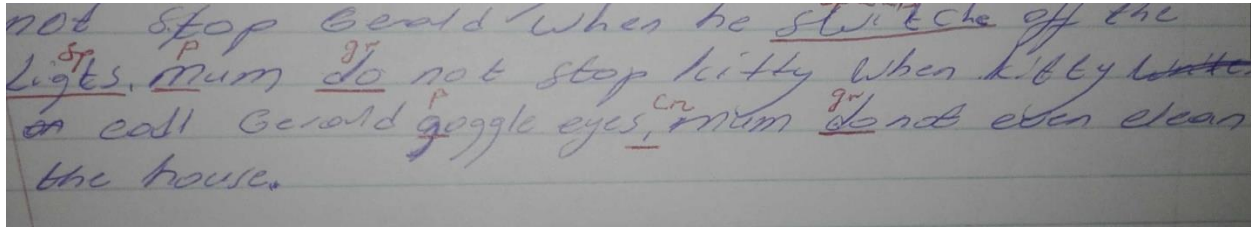 not stop Gerald when he switche off the
sp p gr
Ligts. Mum do not stop kitty when kitty
p cn gr
call Gerald goggle eyes, mum do not even clean
the house.